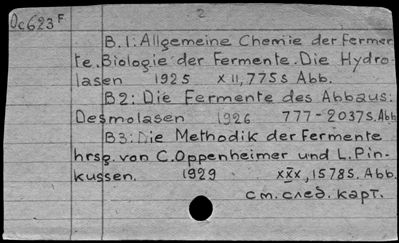 Oc623F 2
B.1: Allgemeine Chemie der Fermen
te. Biologie der Fermente. Die Hydro-
lasen 1925 XII, 775 s Abb.
B2: Die Fermente des Abbaus:
Desmolasen 1926 777-2037S. Abb
B3: Die Methodik der Fermente
hrsg. von C. Oppenheimer und L. Pin-
kussen. 1929 XXX, 1578S. Abb.
см. след. карт.